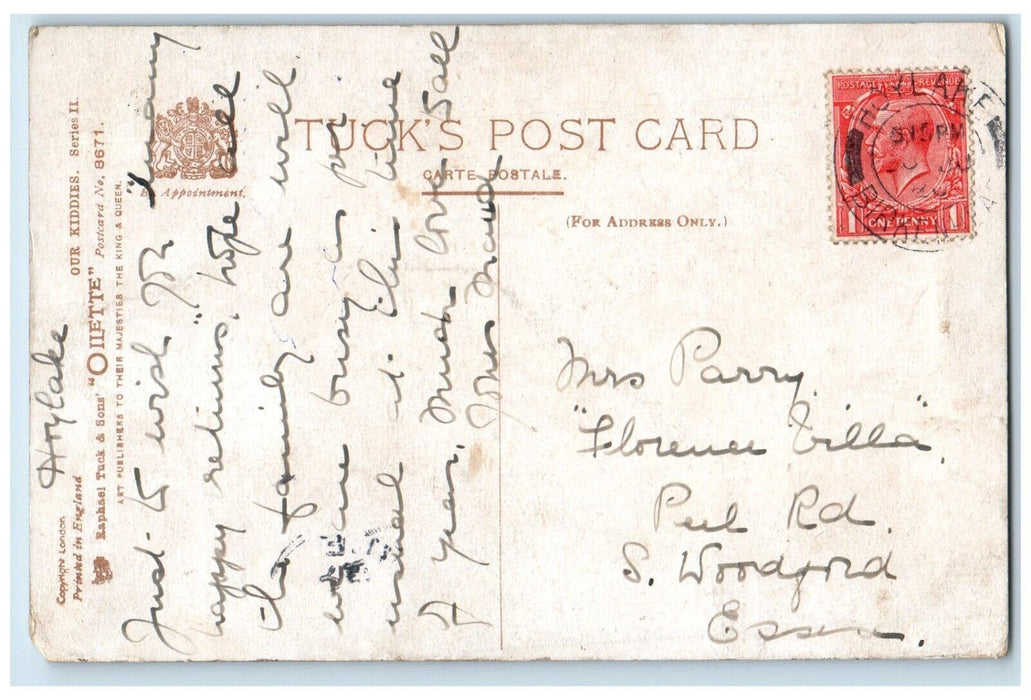 Copyright London
Printed in England
Raphael Tuck & Sons' "OILETTE" Postcard No. 8671.
OUR KIDDIES. Series II.
ART PUBLISHERS TO THEIR MAJESTIES THE KING & QUEEN.
By Appointment.
TUCK'S POST CARD
CARTE POSTALE.
(FOR ADDRESS ONLY.)
POSTAGE REVENUE
1 ONE PENNY 1
HOYLAKE
5.15 PM
BIRKENHEAD
Hoylake
Just to wish you "many
happy returns", hope all
the family are well.
we are busy as per
usual at this time
of year, Much love to all
Yours Maud
Mrs Parry,
"Florence Villa",
Peel Rd.
S. Woodford
Essex.